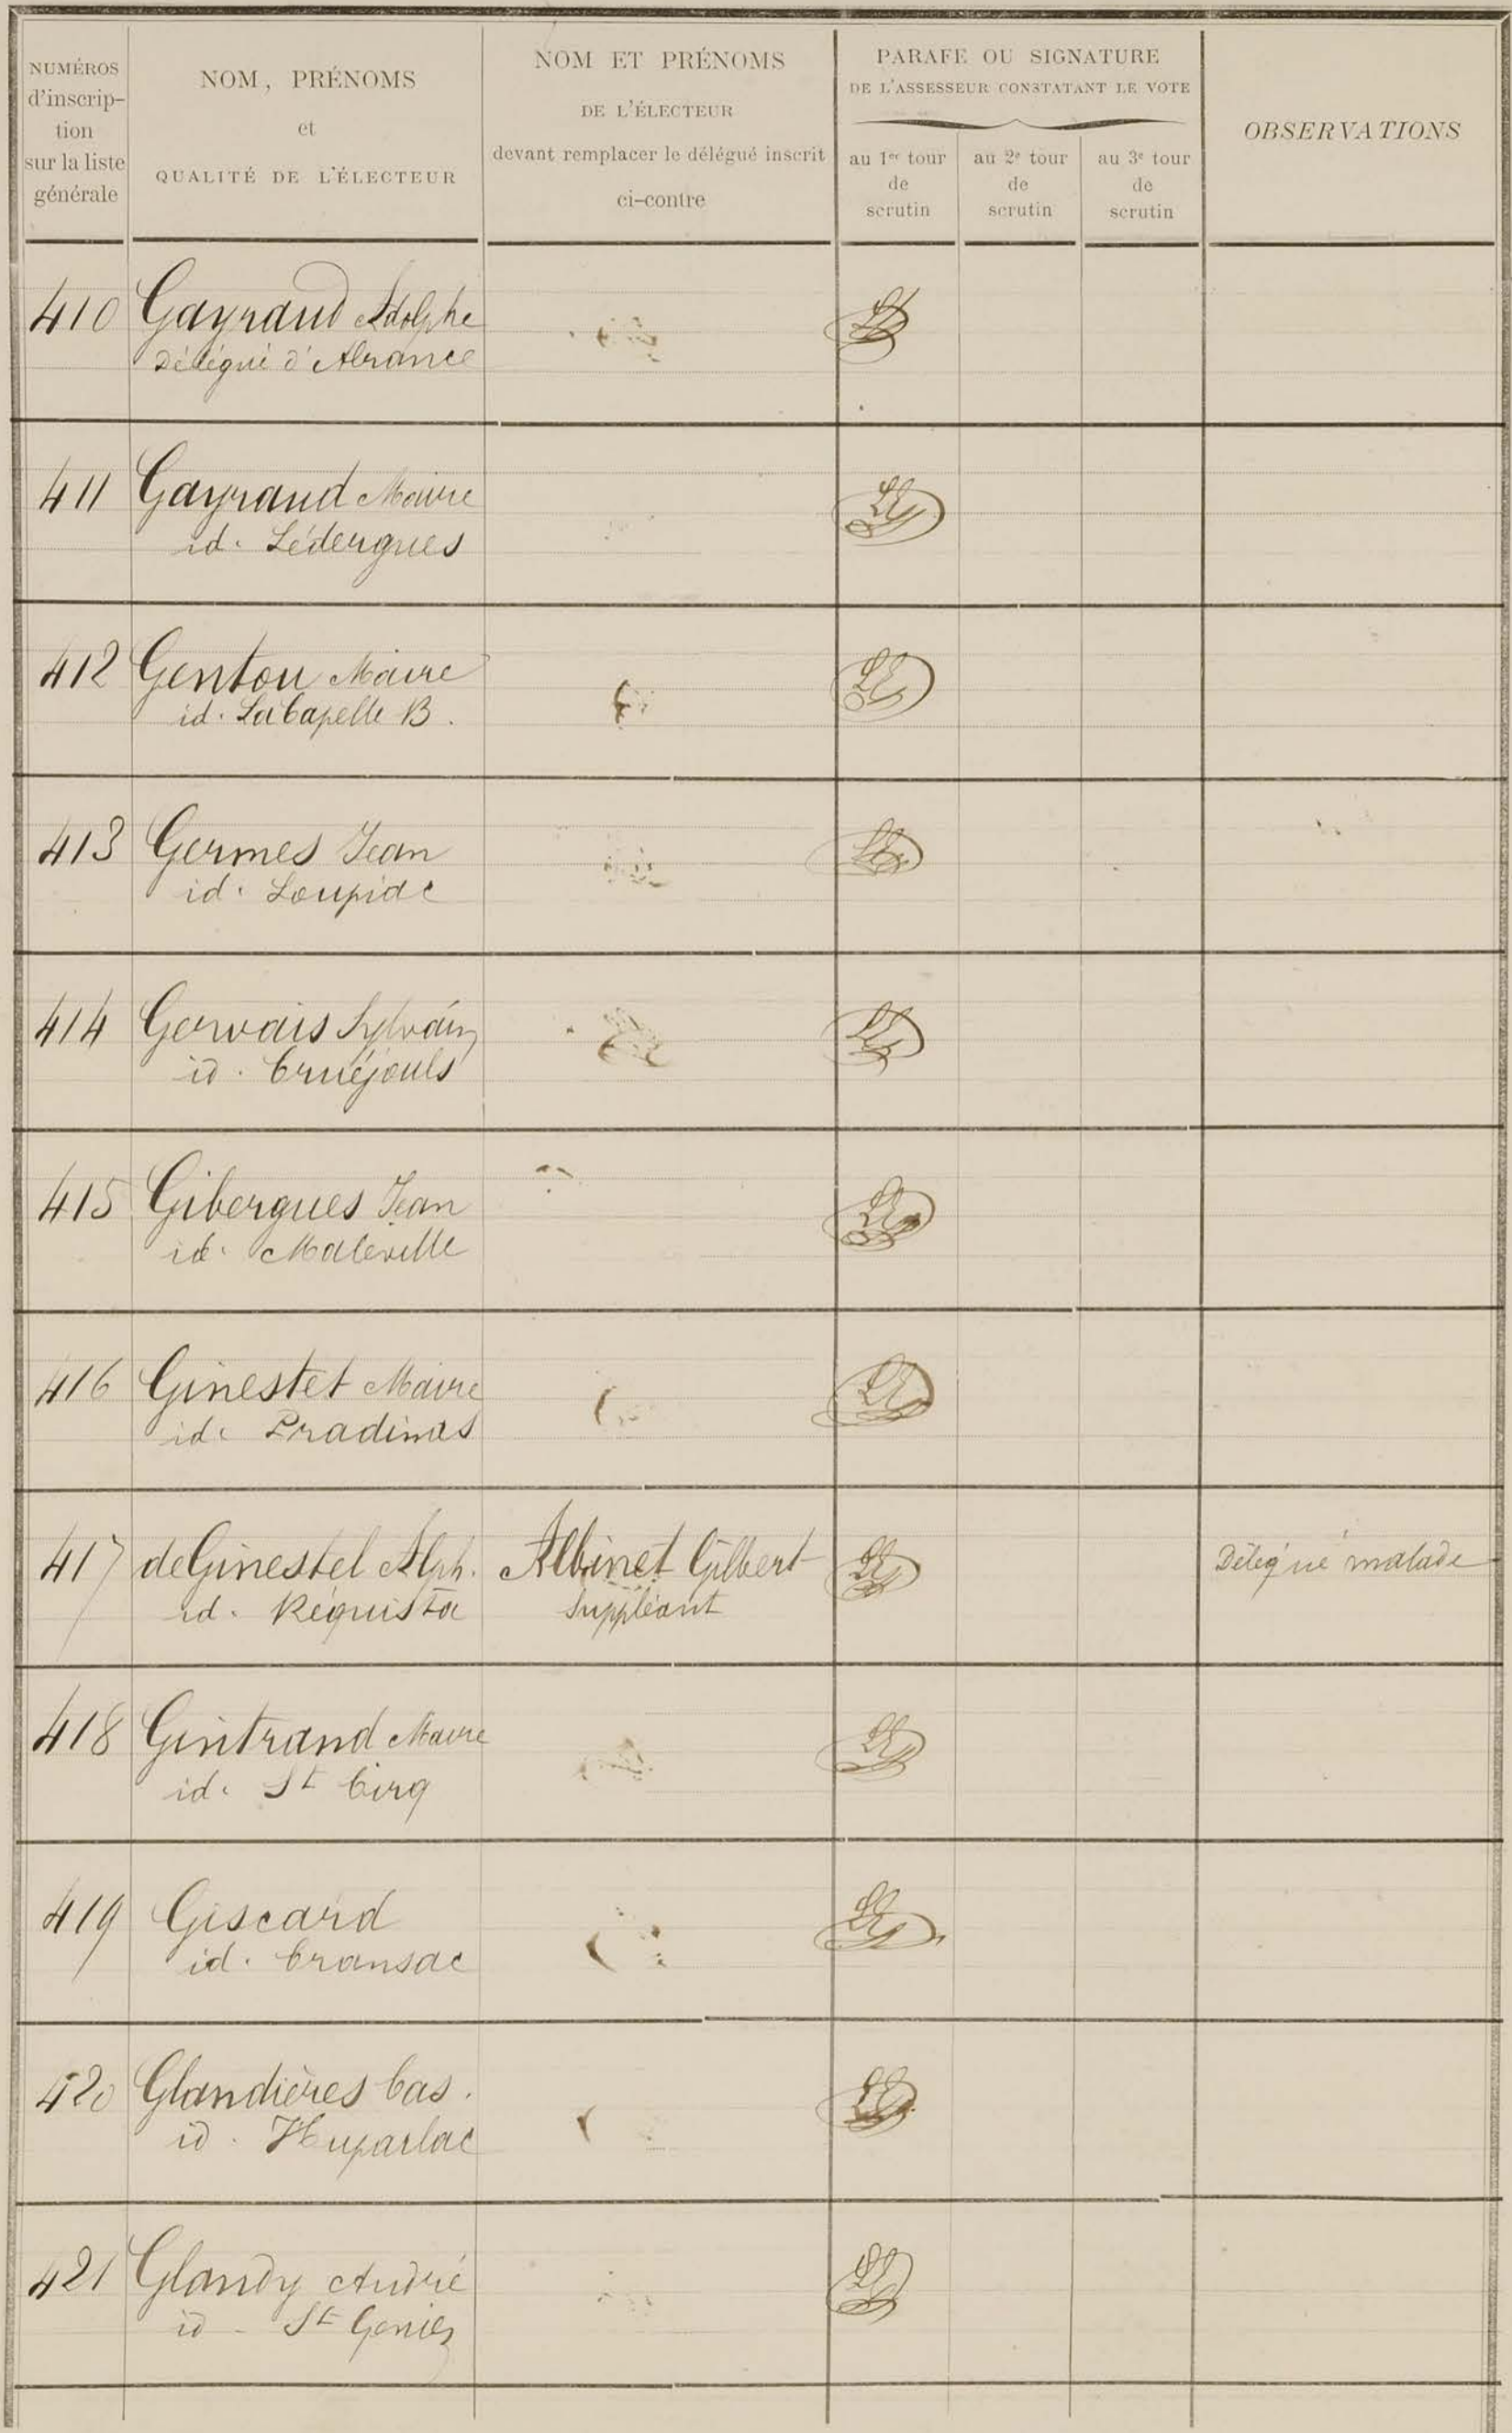 NUMÉROS
d'inscrip-
tion
sur la liste
générale
NOM, PRÉNOMS
et
QUALITÉ DE L'ÉLECTEUR
NOM ET PRÉNOMS
DE L'ÉLECTEUR
devant remplacer le délégué inscrit
ci-contre
PARAFE OU SIGNATURE
DE L'ASSESSEUR CONSTATANT LE VOTE
au 1er tour
de
scrutin
au 2e tour
de
scrutin
au 3e tour
de
scrutin
OBSERVATIONS
410 Gayraud Adolphe
Délégué d'Alrance
411 Gayraud Maire
id. Lédergues
412 Gentou Maire
id. LaCapelle B.
413 Germes Jean
id. Loupiac
414 Gervais Sylvain
id. Cruéjouls
415 Gibergues Jean
id. Maleville
416 Ginestet Maire
id. Pradinas
417 de Ginestel Alph. Albinet Gilbert Délégué malade
id. Réquista Suppléant
418 Gintrand Maire
id. St Cirq
419 Giscard
id. Cransac
420 Glandières Cas.
id. Huparlac
421 Glandy André
id - St Geniez